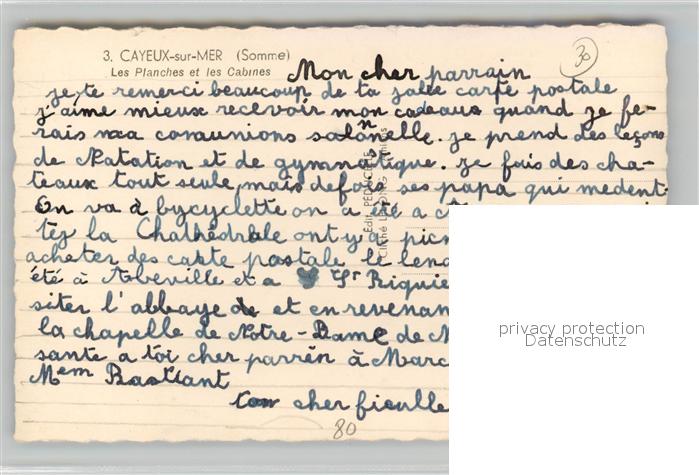 3. CAYEUX-sur-MER (Somme)
Les Planches et les Cabines
30
Mon cher parrain
je te remerci beaucoup de ta jolie carte postale
j'aime mieux recevoir mon cadeaux quand je fe-
rais ma comunions solonnelle. je prend des leçons
de Natation et de gymnatique. je fais des cha-
teaux tout seule mais defois ses papa qui m'edent.
On va à bycyclette on a été a
tez la Chathédrale ont y a
acheter des carte postale le
été à Abbeville et a St Riquie
siter l'abbaye de et en revenan
la chapelle de Notre-Dame de
sante a toi cher parrèn à Marc
Mem Bastiant
ton cher fieulle
80
privacy protection
Datenschutz